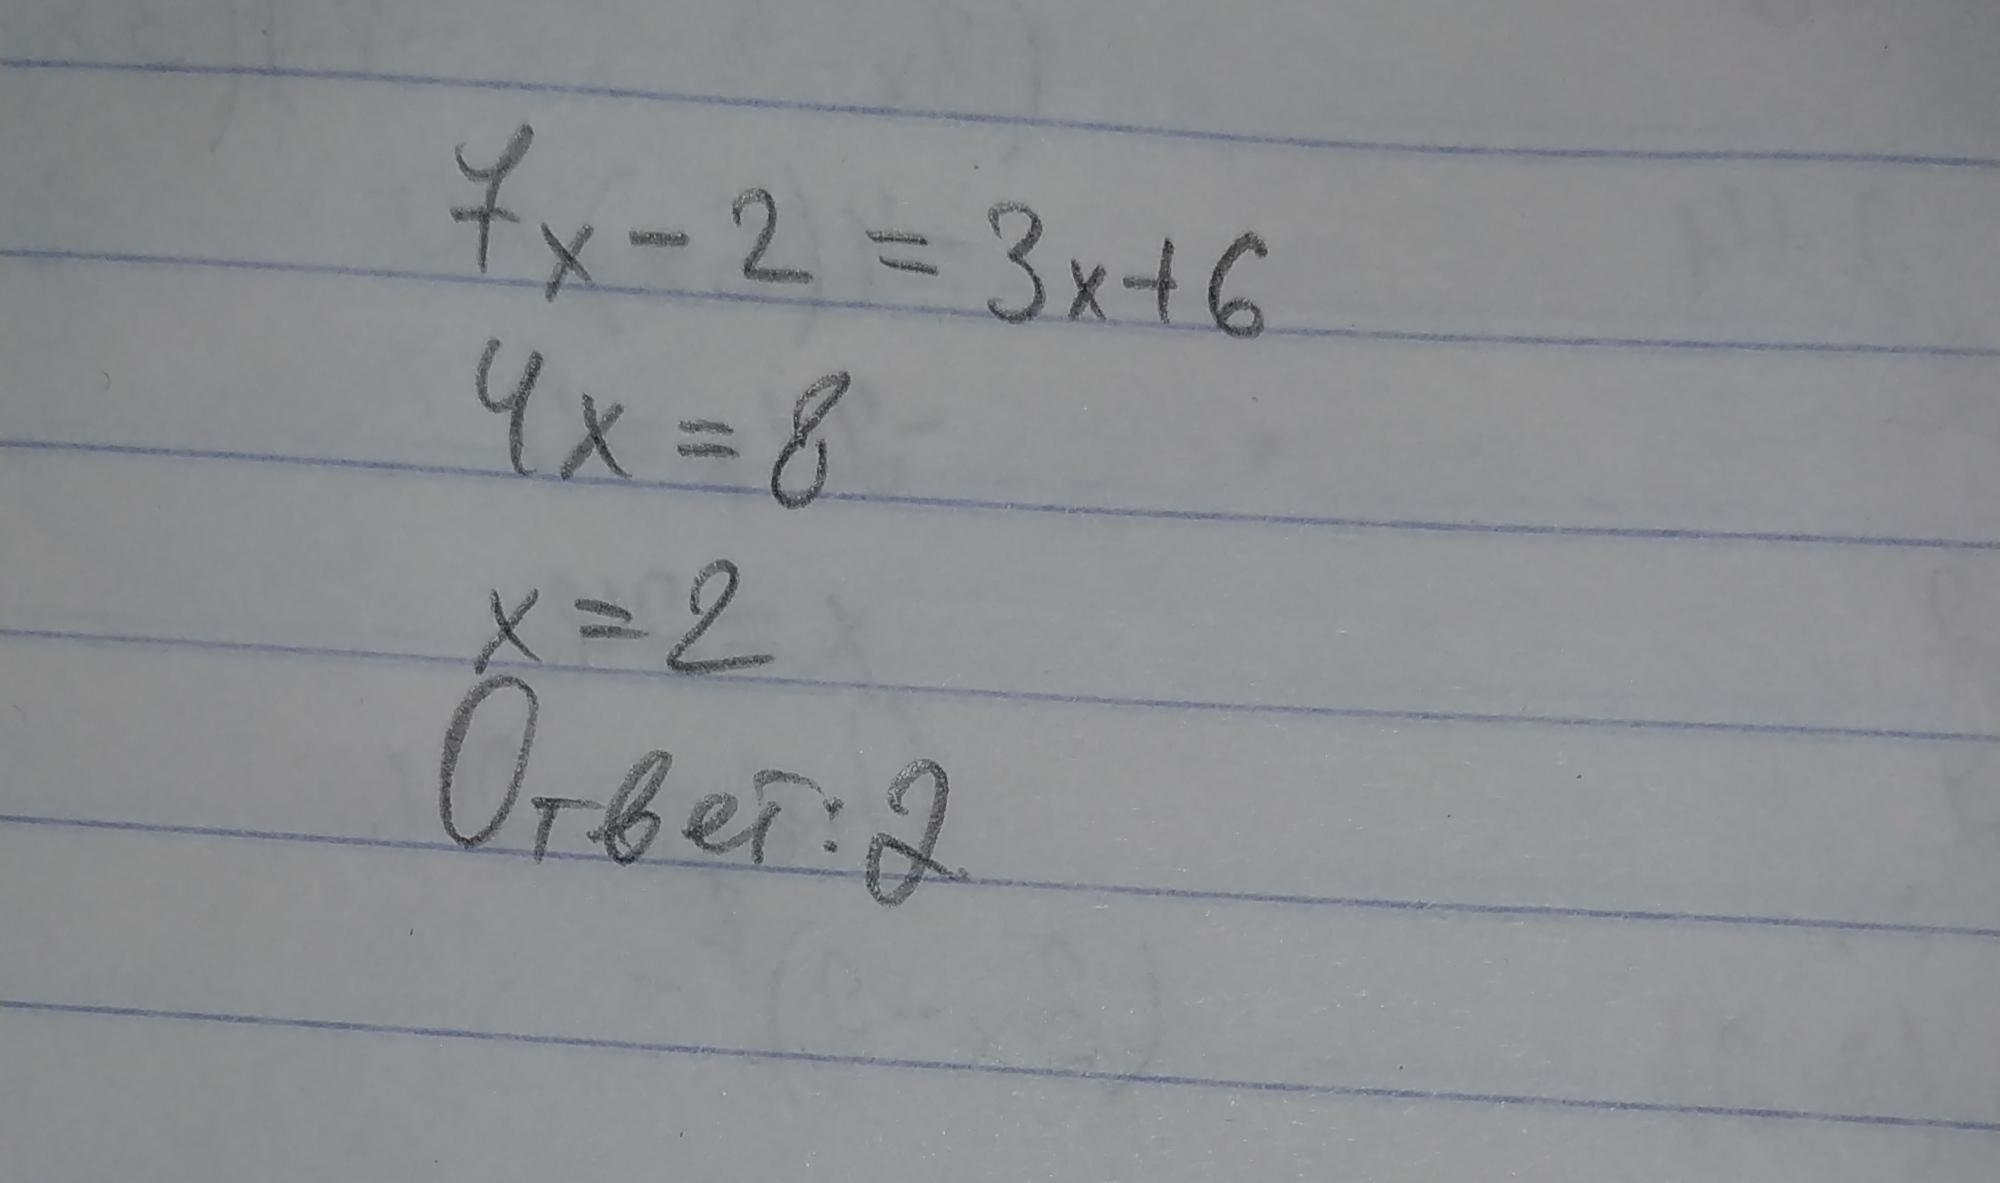 7x - 2 = 3x + 6
4x = 8
x = 2
Ответ: 2